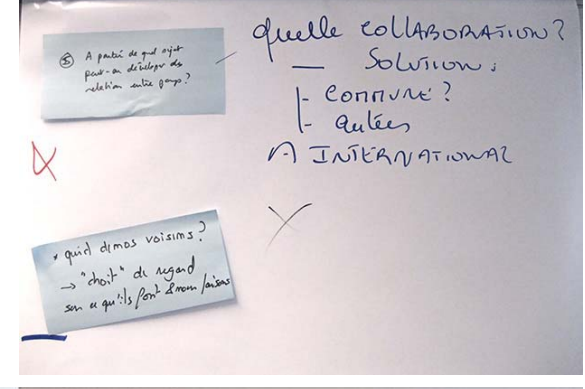 ⑤ A partir de quel sujet
peut-on développer des
relation entre pays?
quelle COLLABORATION?
— SOLUTION:
|- COMMUNE?
|- autres
INTERNATIONAL
* quid de nos voisins?
→ "droit" de regard
sur ce qu'ils font & nous faisons